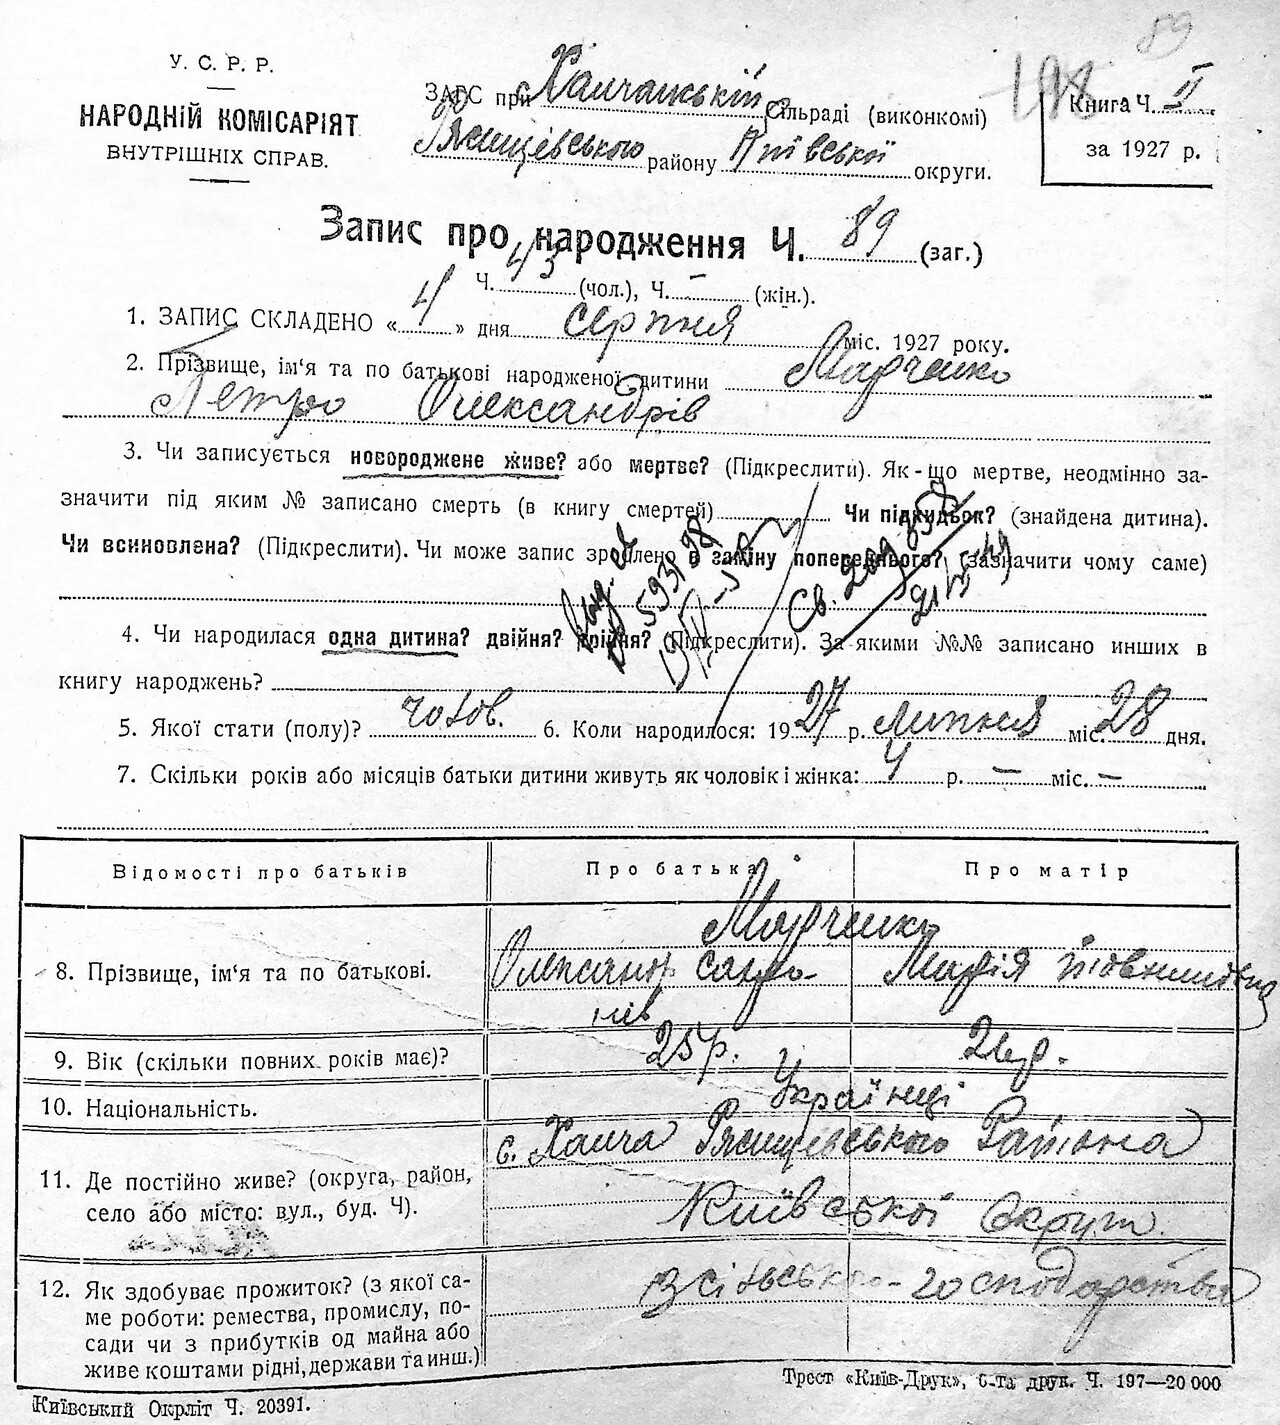 89
198
У. С. Р. Р.
НАРОДНІЙ КОМІСАРІЯТ
ВНУТРІШНІХ СПРАВ.
ЗАГС при Халчанській Сільраді (виконкомі)
Ржищівського району Київської округи.
Книга Ч. II
за 1927 р.
Запис про народження Ч. 89 (заг.)
Ч. 43 (чол.), Ч. – (жін.).
1. ЗАПИС СКЛАДЕНО « 4 » дня серпня міс. 1927 року.
2. Прізвище, ім‘я та по батькові народженої дитини Марченко
Петро Олександрів
3. Чи записується новороджене живе? або мертве? (Підкреслити). Як-що мертве, неодмінно за-
значити під яким № записано смерть (в книгу смертей) Чи підкидьок? (знайдена дитина).
Чи всиновлена? (Підкреслити). Чи може запис зроблено в заміну попереднього? (зазначити чому саме)
4. Чи народилася одна дитина? двійня? трійня? (Підкреслити). За якими №№ записано инших в
книгу народжень?
5. Якої стати (полу)? чолов. 6. Коли народилося: 1927 р. липня міс. 28 дня.
7. Скільки років або місяців батьки дитини живуть як чоловік і жінка: 4 р. – міс. –
Відомості про батьків Про батька Про матір
Марченко
8. Прізвище, ім‘я та по батькові. Олександр Марія
9. Вік (скільки повних років має)? 25 р.
10. Національність. Українці
с. Халча Ржищівського Району
11. Де постійно живе? (округа, район,
село або місто: вул., буд. Ч). Київської Округи.
12. Як здобуває прожиток? (з якої са-
ме роботи: ремества, промислу, по-
сади чи з прибутків од майна або
живе коштами рідні, держави та инш.)
з сільсько-господарства
Київський Окрліт Ч. 20391.
Трест «Київ-Друк», 6-та друк. Ч. 197—20 000